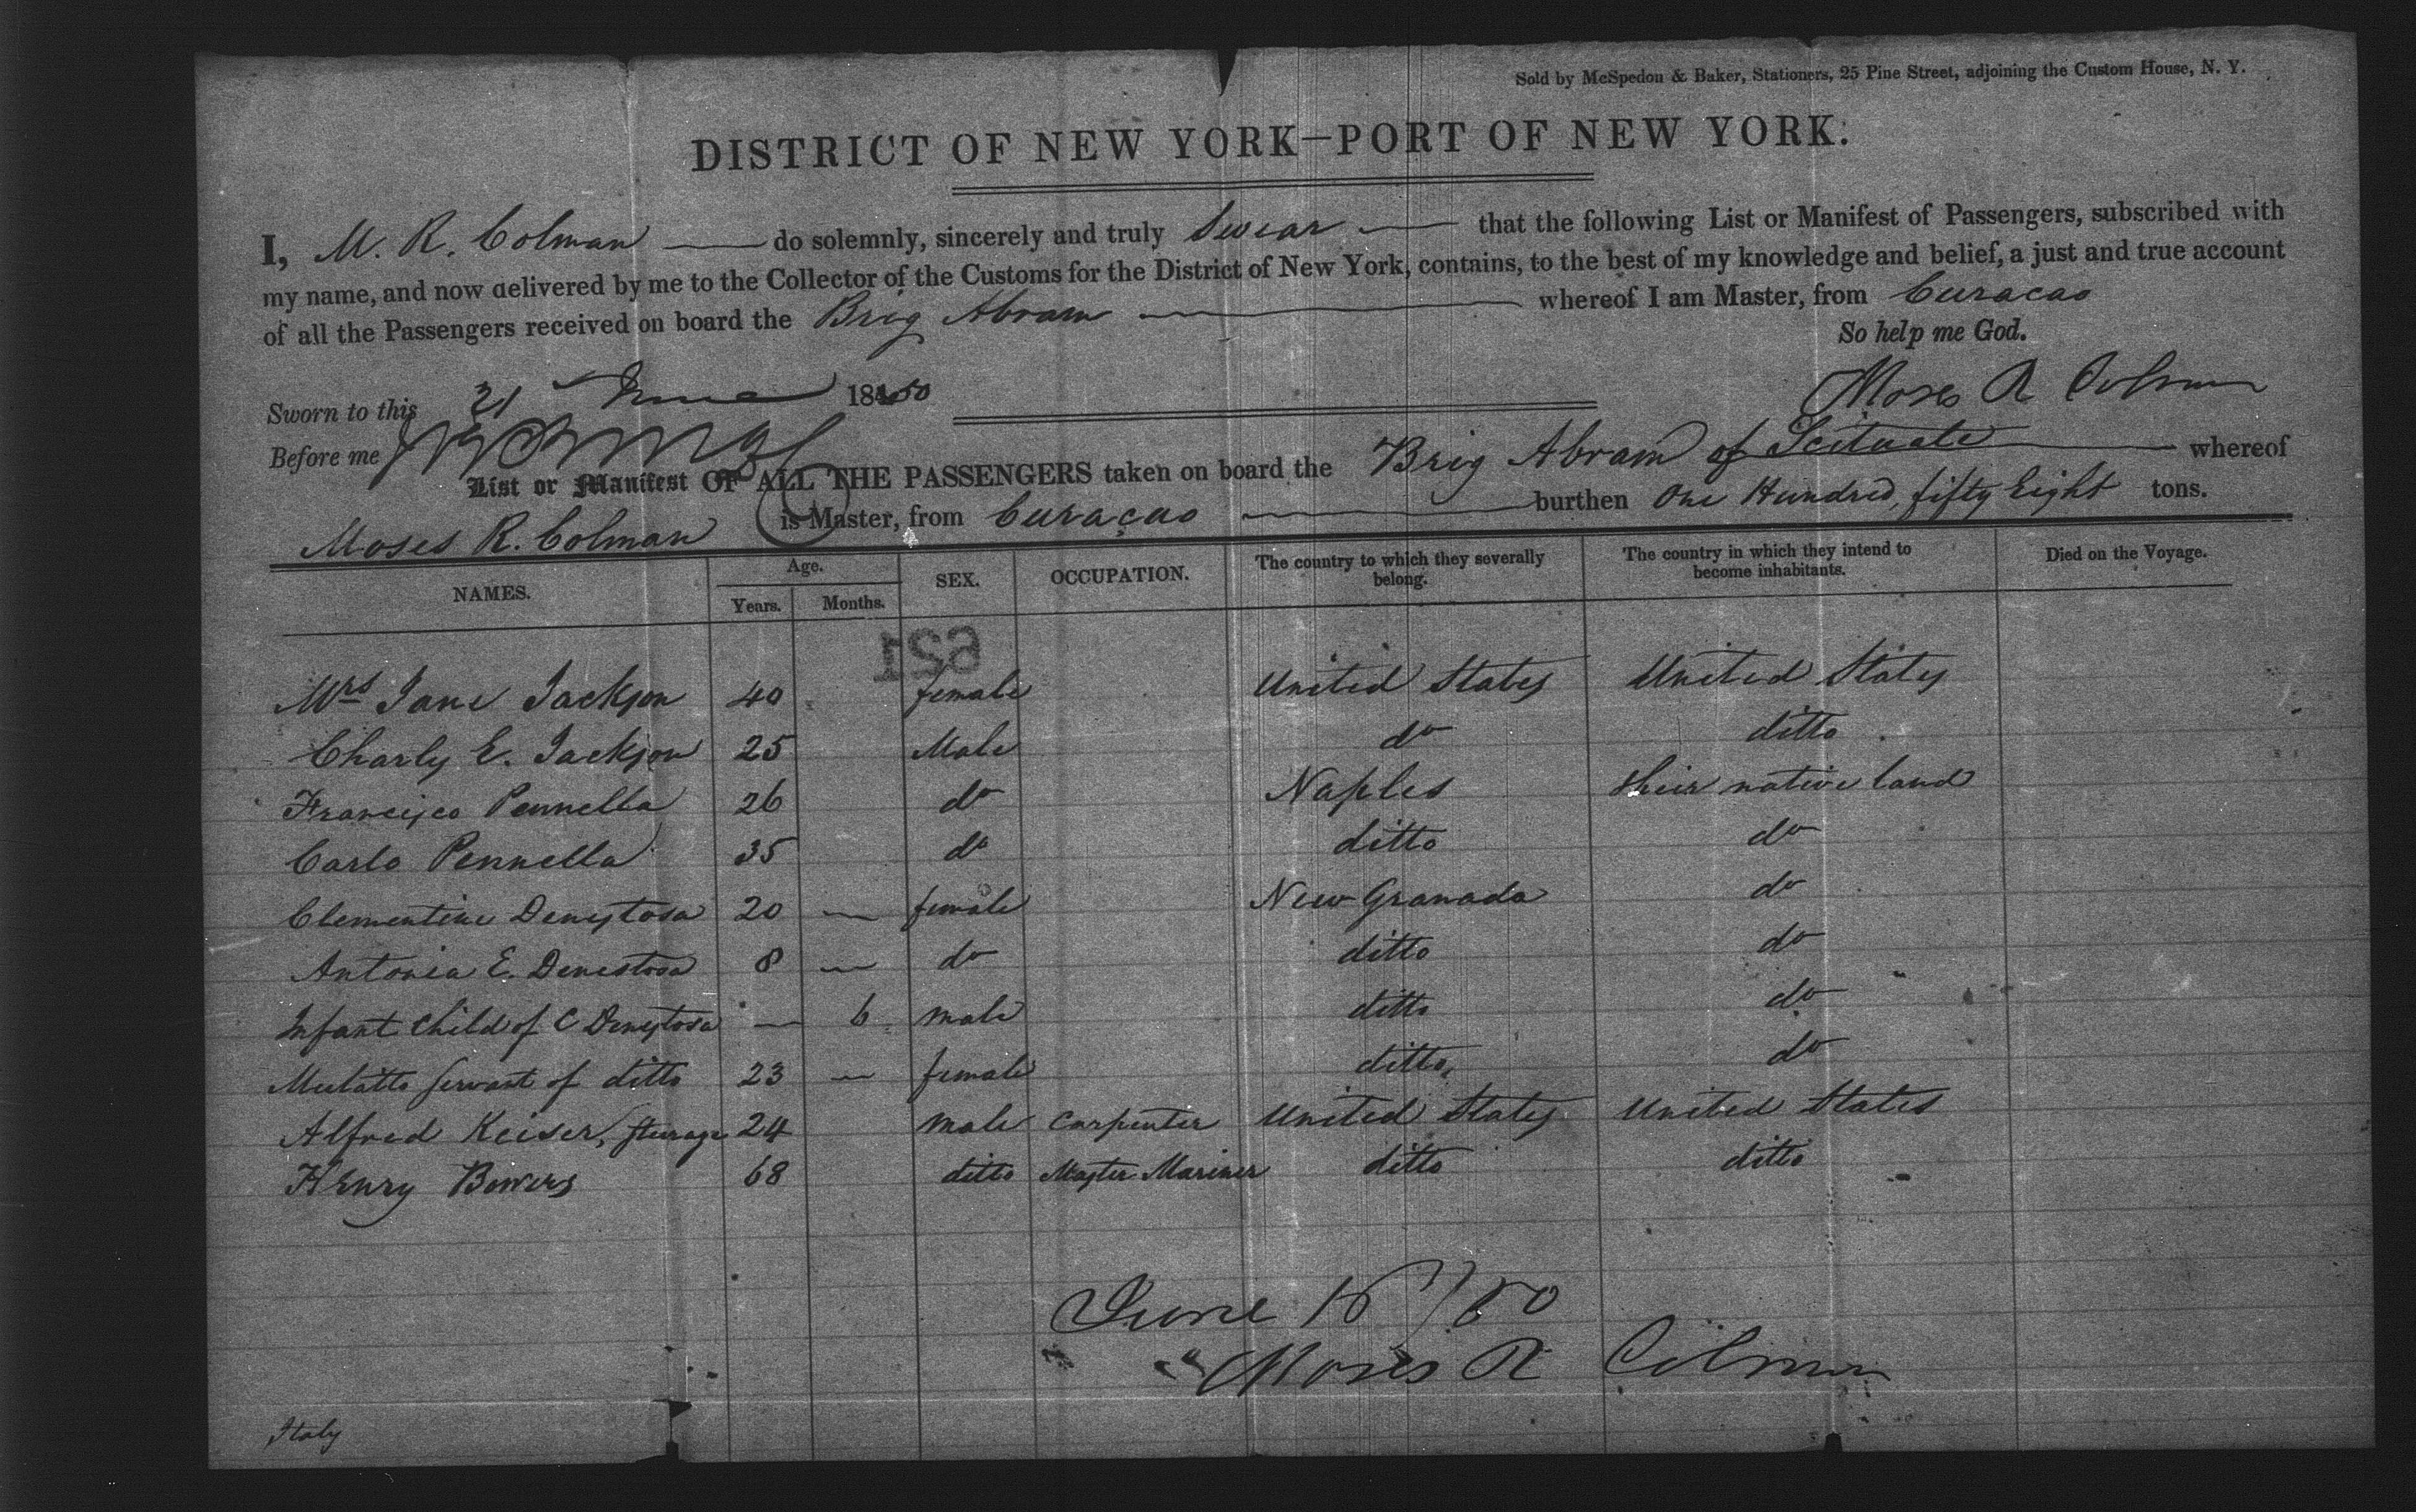 Sold by McSpedon & Baker, Stationers, 25 Pine Street, adjoining the Custom House, N. Y.
DISTRICT OF NEW YORK—PORT OF NEW YORK.
I, M. R. Colman do solemnly, sincerely and truly Swear that the following List or Manifest of Passengers, subscribed with
my name, and now delivered by me to the Collector of the Customs for the District of New York, contains, to the best of my knowledge and belief, a just and true account
of all the Passengers received on board the Brig Abram whereof I am Master, from Curacao
So help me God.
Sworn to this 21 June 1850 Moses R Colman
Before me
List or Manifest OF ALL THE PASSENGERS taken on board the Brig Abram of Scituate whereof
Moses R. Colman is Master, from Curaçao burthen One Hundred, fifty Eight tons.
NAMES. Age. Years. Months. SEX. OCCUPATION. The country to which they severally belong. The country in which they intend to become inhabitants. Died on the Voyage.
621
Mrs Jane Jackson 40 female United States United States
Charly E. Jackson 25 Male do ditto
Francisco Pennella 26 do Naples their native land
Carlo Pennella 35 do ditto do
Clementine Denestosa 20 — female New Granada do
Antonia E. Denestosa 8 — do ditto do
Infant Child of C Denestosa — 6 male ditto do
Mulatto servant of ditto 23 — female ditto do
Alfred Keiser, steerage 24 male Carpenter United States United States
Henry Bowers 68 ditto Master Mariner ditto ditto
June 18 /50
Moses R Colman
Italy